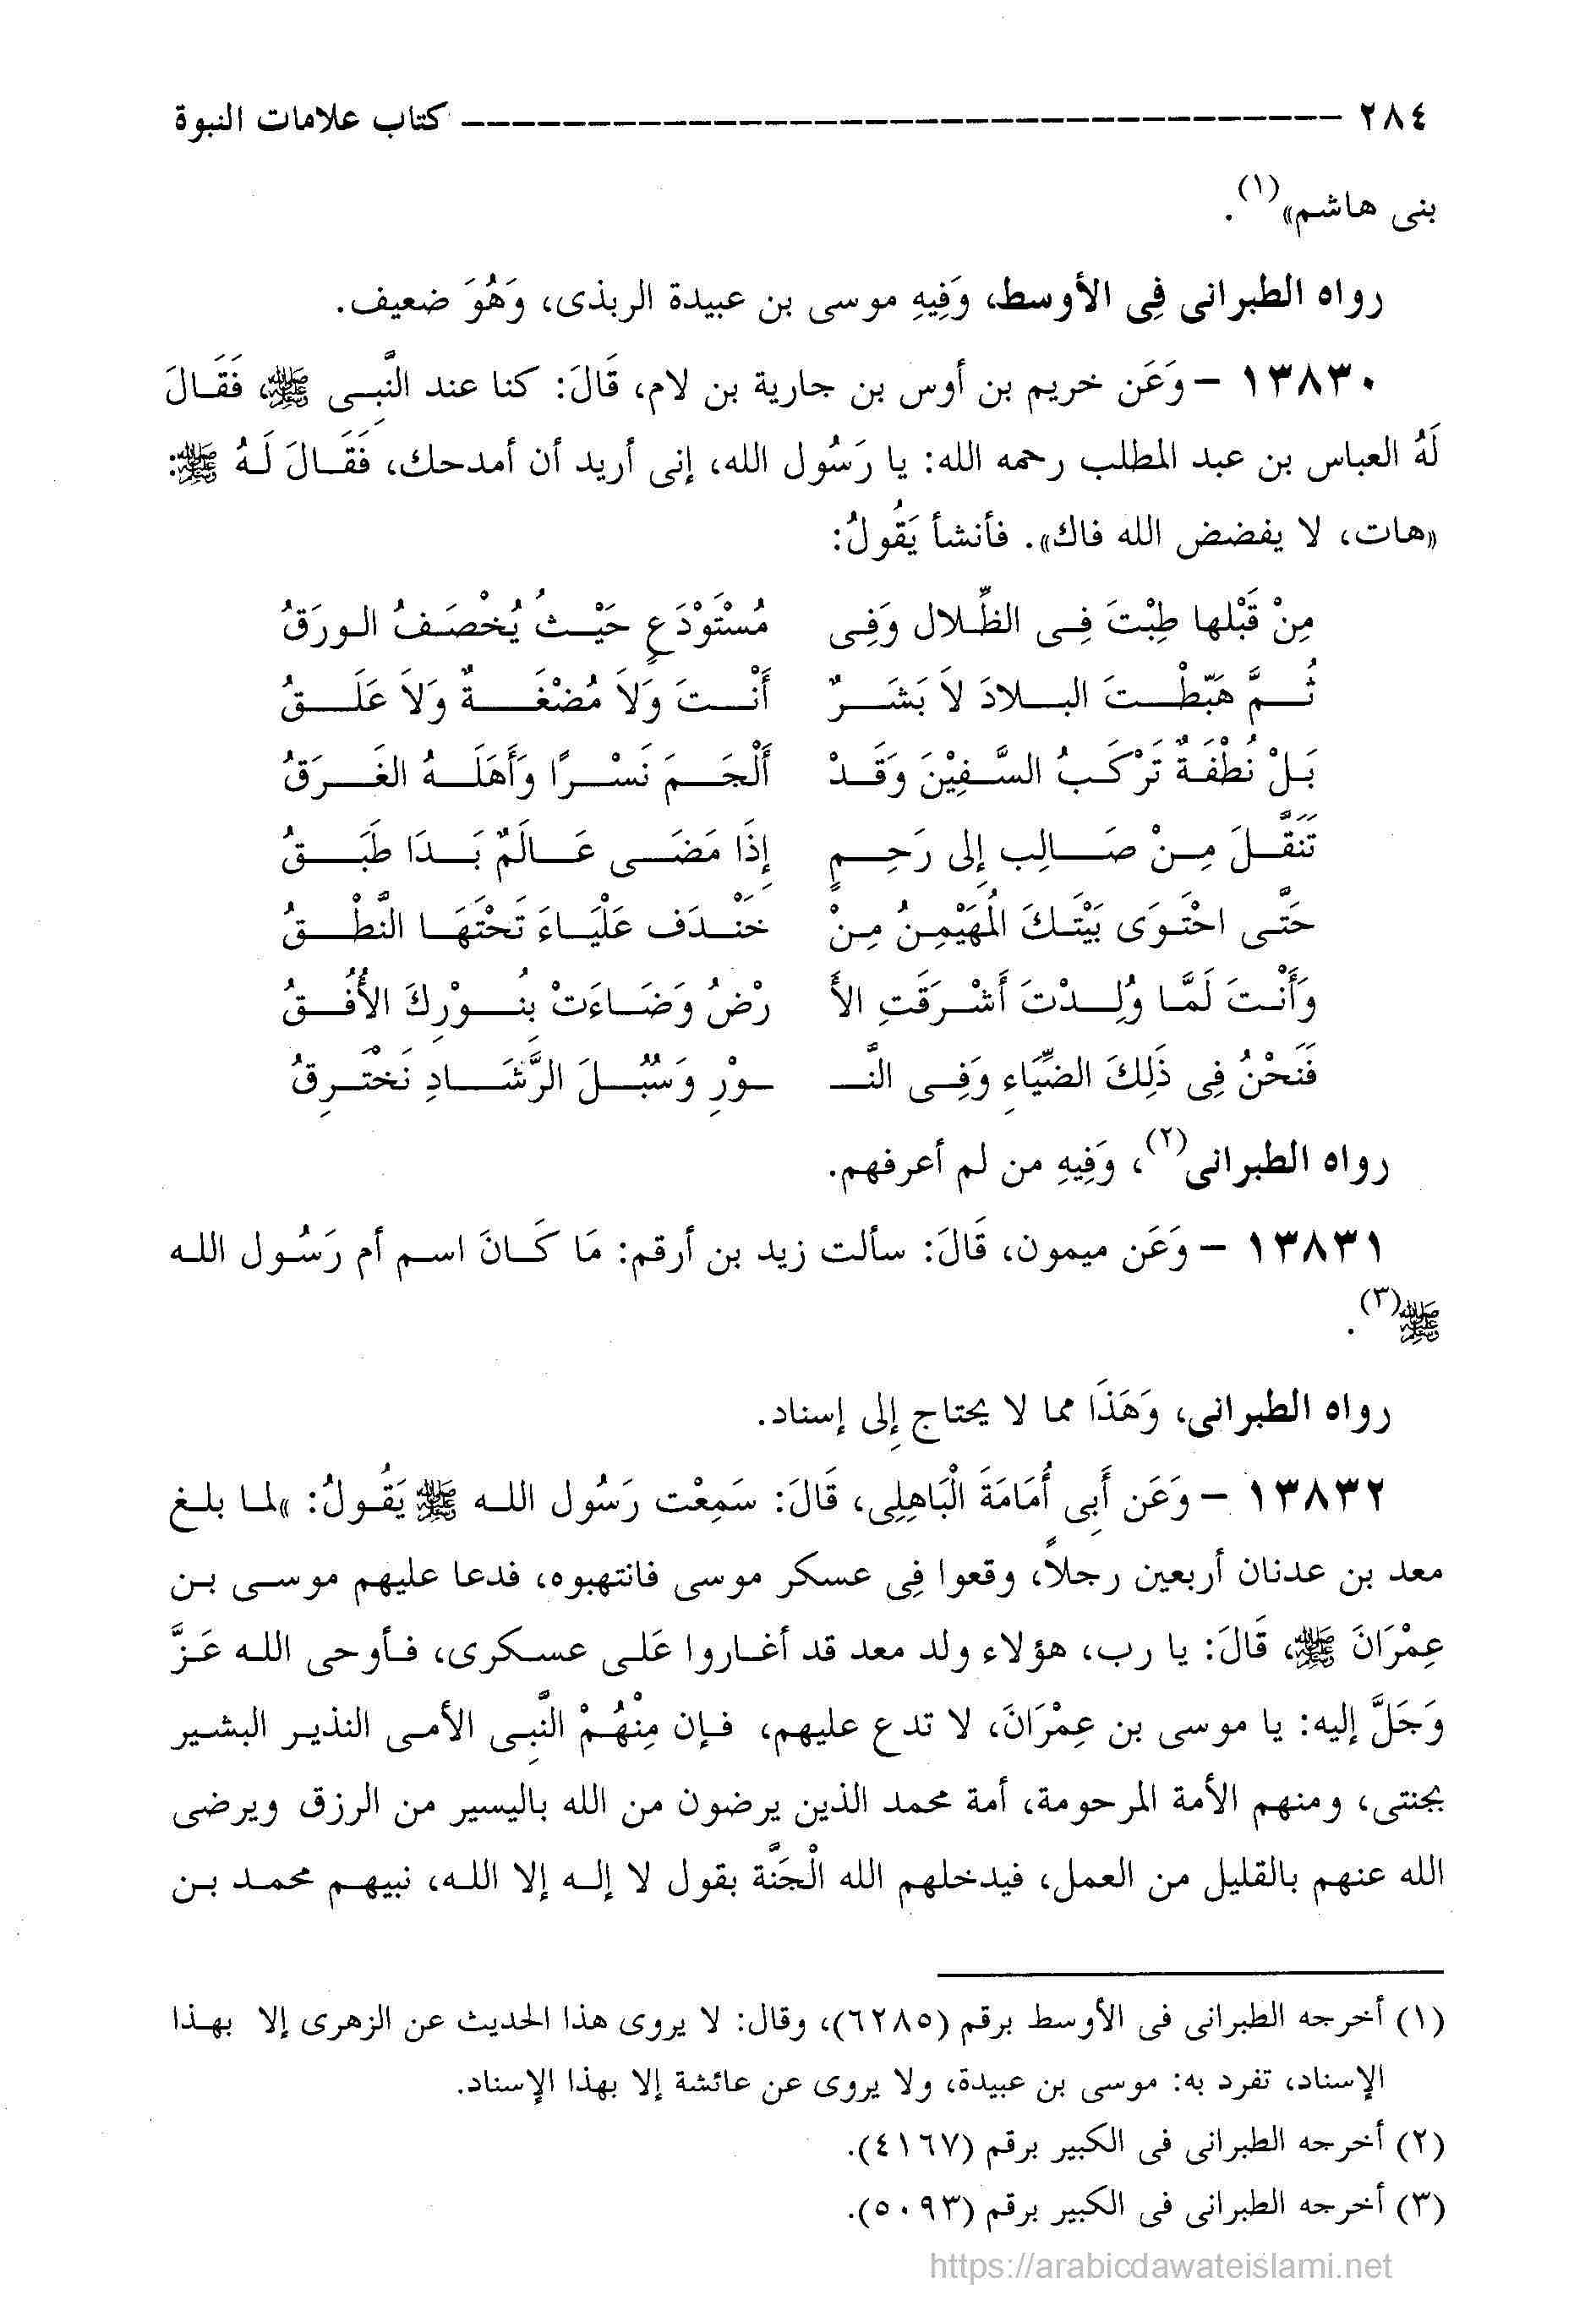 ٢٨٤ ----------------------------------- كتاب علامات النبوة
بنى هاشم»(١).
رواه الطبرانى فِى الأوسط، وَفِيهِ موسى بن عبيدة الربذى، وَهُوَ ضعيف.
١٣٨٣٠ – وَعَن خريم بن أوس بن جارية بن لام، قَالَ: كنا عند النَّبِى ﷺ، فَقَالَ
لَهُ العباس بن عبد المطلب رحمه الله: يا رَسُول الله، إنى أريد أن أمدحك، فَقَالَ لَهُ ﷺ:
«هات، لا يفضض الله فاك». فأنشأ يَقُولُ:
مِنْ قَبْلها طِبْتَ فِى الظِّلال وَفِى مُسْتَوْدَعٍ حَيْثُ يُخْصَفُ الورَقُ
ثُمَّ هَبّطْتَ البلادَ لاَ بَشَرٌ أَنْتَ وَلاَ مُضْغَةٌ وَلاَ عَلَقُ
بَلْ نُطْفَةٌ تَرْكَبُ السَّفِيْنَ وَقَدْ أَلْجَمَ نَسْرًا وَأَهَلَهُ الغَرَقُ
تَنَقَّلَ مِنْ صَالِب إِلى رَحِمٍ إِذَا مَضَى عَالَمٌ بَدَا طَبَقُ
حَتَّى احْتَوَى بَيْتَكَ الُمهَيْمِنُ مِنْ خَنْدَف عَلْيَاءَ تَحْتَهَا النَّطْقُ
وَأَنْتَ لَمَّا وُلِدْتَ أَشْرَقَتِ الأَ رْضُ وَضَاءَتْ بِنُوْرِكَ الأُفُقُ
فَنَحْنُ فِى ذَلِكَ الضِّيَاءِ وَفِى النَّـ ـوْرِ وَسُبُلَ الرَّشَادِ نَخْتَرِقُ
رواه الطبرانى(٢)، وَفِيهِ من لم أعرفهم.
١٣٨٣١ – وَعَن ميمون، قَالَ: سألت زيد بن أرقم: مَا كَانَ اسم أم رَسُول الله
ﷺ(٣).
رواه الطبرانى، وَهَذَا مما لا يحتاج إِلى إسناد.
١٣٨٣٢ – وَعَن أَبِى أُمَامَةَ الْبَاهِلِى، قَالَ: سَمِعْت رَسُول الله ﷺ يَقُولُ: «لما بلغ
معد بن عدنان أربعين رجلاً، وقعوا فِى عسكر موسى فانتهبوه، فدعا عليهم موسى بن
عِمْرَانَ ﷺ، قَالَ: يا رب، هؤلاء ولد معد قد أغاروا عَلى عسكرى، فأوحى الله عَزَّ
وَجَلَّ إليه: يا موسى بن عِمْرَانَ، لا تدع عليهم، فإن مِنْهُمْ النَّبِى الأمى النذير البشير
بجنتى، ومنهم الأمة المرحومة، أمة محمد الذين يرضون من الله باليسير من الرزق ويرضى
الله عنهم بالقليل من العمل، فيدخلهم الله الْجَنَّة بقول لا إله إلا الله، نبيهم محمد بن
(١) أخرجه الطبرانى فى الأوسط برقم (٦٢٨٥)، وقال: لا يروى هذا الحديث عن الزهرى إلا بهذا
الإسناد، تفرد به: موسى بن عبيدة، ولا يروى عن عائشة إلا بهذا الإسناد.
(٢) أخرجه الطبرانى فى الكبير برقم (٤١٦٧).
(٣) أخرجه الطبرانى فى الكبير برقم (٥٠٩٣).
https://arabicdawateislami.net